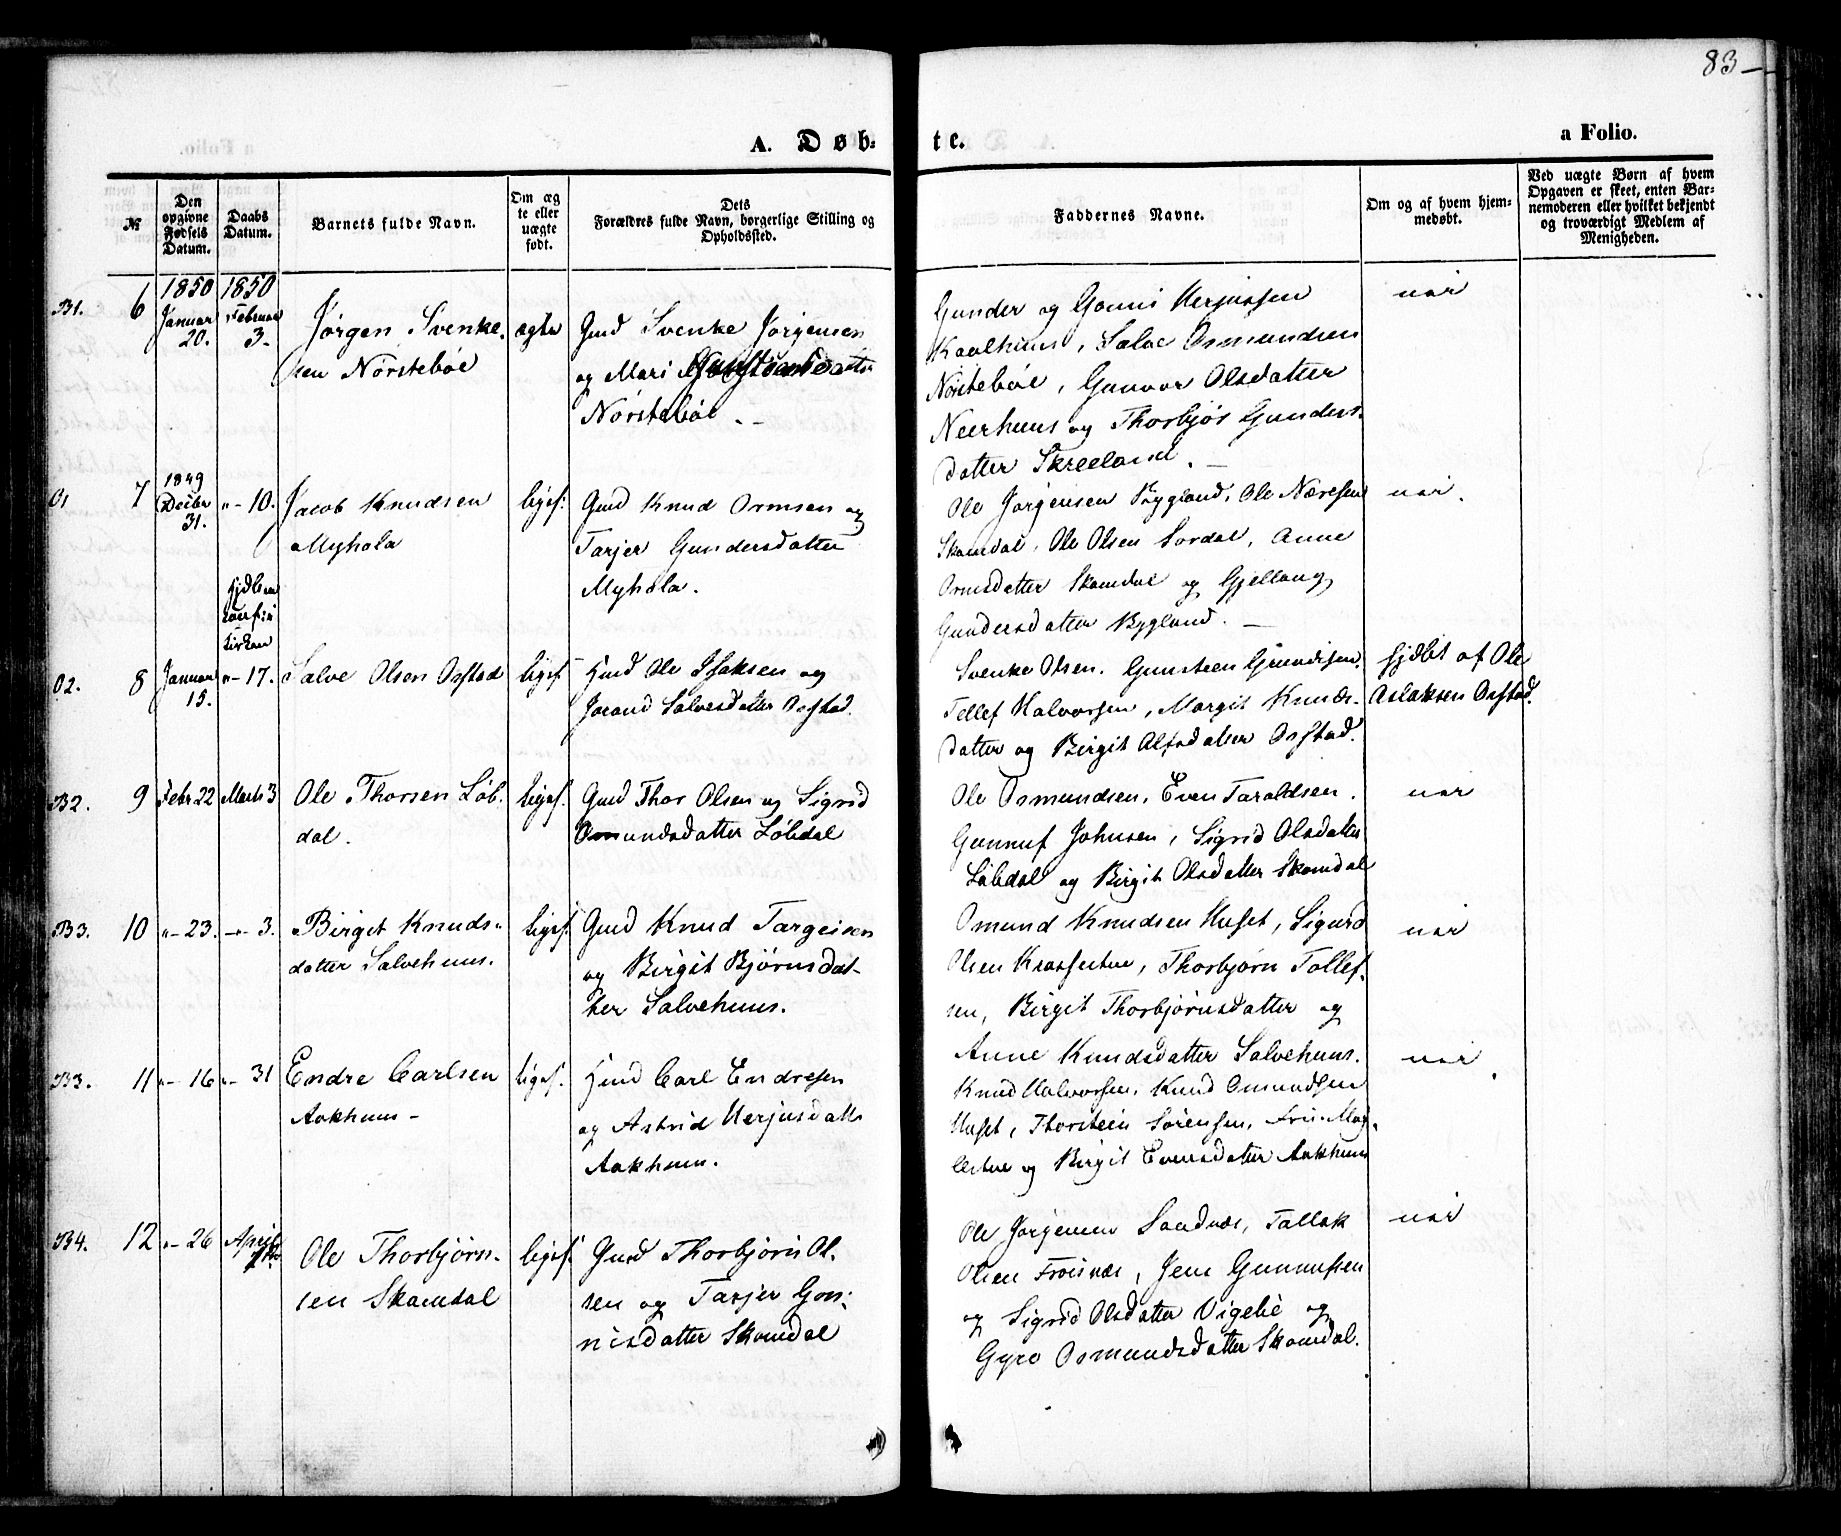 83
A. Døb-
te.
a Folio.
№
Den opgivne Fødsels Datum.
Daabs Datum.
Barnets fulde Navn.
Om ægte eller uægte født.
Dets Forældres fulde Navn, borgerlige Stilling og Opholdssted.
Faddernes Navne.
Om og af hvem hjemmedøbt.
Ved uægte Børn af hvem Opgaven er skeet, enten Barnemoderen eller hvilket bekjendt og troværdigt Medlem af Menigheden.
B1. 6
1850 Januar 20.
1850 Februar 3.
Jørgen Svenke-
sen Nörstebøe
ægte
Gmd Svenke Jörgensen
og Mari
Nörstebøe.
Gunder og Gonni Herjusen
Kaalhuus, Salve Osmundsen
Nörstebøe, Gunvor Olsdatter
Neerhuus og Thorbjör Gunders-
datter Skreeland.
nei
O1 7
1849 Decbr 31.
"- 10.
Jacob Knudsen
Myhola
liges.
Gmd Knud Ormsen og
Tarjer Gundersdatter
Myhola.
Ole Jörgensen Bygland, Ole Næresen
Skamdal, Ole Olsen Sordal, Anne
Ormsdatter Skamdal og Gjellaug
Gundersdatter Bygland.
nei.
O2. 8
Januar 15.
"- 17.
Salve Olsen Osstad
liges.
Gmd Ole Isaksen og
Jorand Salvesdatter Osstad.
Svenke Olsen, Gunsteen
Tellef Halvorsen, Margit Knuds-
datter og Birgit Alfsdatter Osstad.
hjdbt af Ole
Aslaksen Osstad.
B2. 9
Febr 22
Marts 3
Ole Thorsen Löb-
dal.
liges.
Gmd Thor Olsen og Sigrid
Omundsdatter Löbdal
Ole Osmundsen, Even Taraldsen,
Gunnuf Johnsen, Sigrid Olsdatter
Löbdal og Birgit Olsdatter Skomdal
nei
B3. 10
"- 23.
-"- 3.
Birget Knuds-
datter Salvehuus.
liges.
Gmd Knud Targeisen
og Birgit Bjørnsdat-
ter Salvehuus.
Omund Knudsen Huset, Sigurd
Olsen, Thorbjørn Tollef-
sen, Birgit Thorbjørnsdatter og
Anne Knudsdatter Salvehuus.
nei
B3. 11
"- 16
"- 31
Endre Carlsen
Aakhuus -
ligef.
Gmd Carl Endresen
og Astrid Herjusdatter
Aakhuus.
Knud Halvorsen, Knud Omundsen
Huset, Thorstein Sörensen,
og Birgit Evensdatter Aakhuus
nei
B4. 12
"- 26
April
Ole Thorbjørn-
sen Skamdal
ligef.
Gmd Thorbjörn Ol-
sen og Tarjer Gon-
nisdatter Skomdal
Ole Jörgensen Sandnæs, Tallak
Olsen Froisnæs, Jens Gunnufsen
og Sigrid Olsdatter Vigelie og
Gyro Osmundsdatter Skomdal.
nei